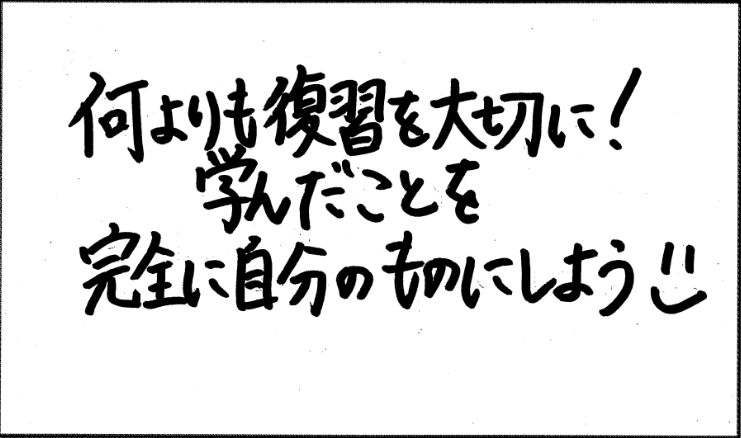 何よりも復習を大切に!
学んだことを
完全に自分のものにしよう